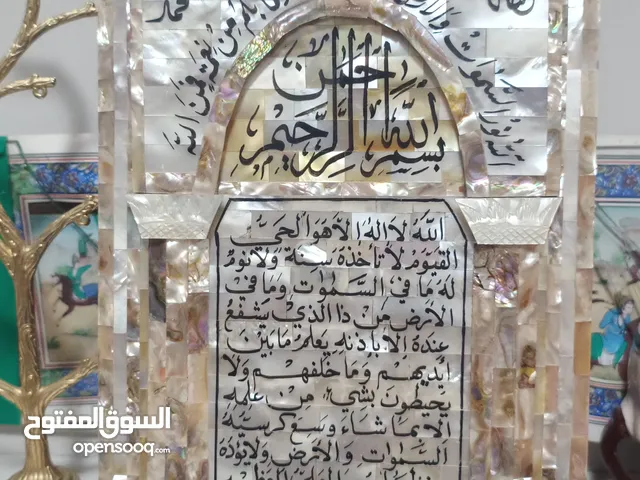 محمد
وما بكم من نعمة فمن الله
الله نور السموات والأرض
بسم الله الرحمن الرحيم
الله لا اله الا هو الحي
القيوم لا تأخذه سنة ولا نوم
له ما في السموات وما في
الارض من ذا الذي يشفع
عنده الا باذنه يعلم ما بين
أيديهم وما خلفهم ولا
يحيطون بشيء من علمه
الا بما شاء وسع كرسيه
السموات والارض ولا يؤده
السوق المفتوح
opensooq.com